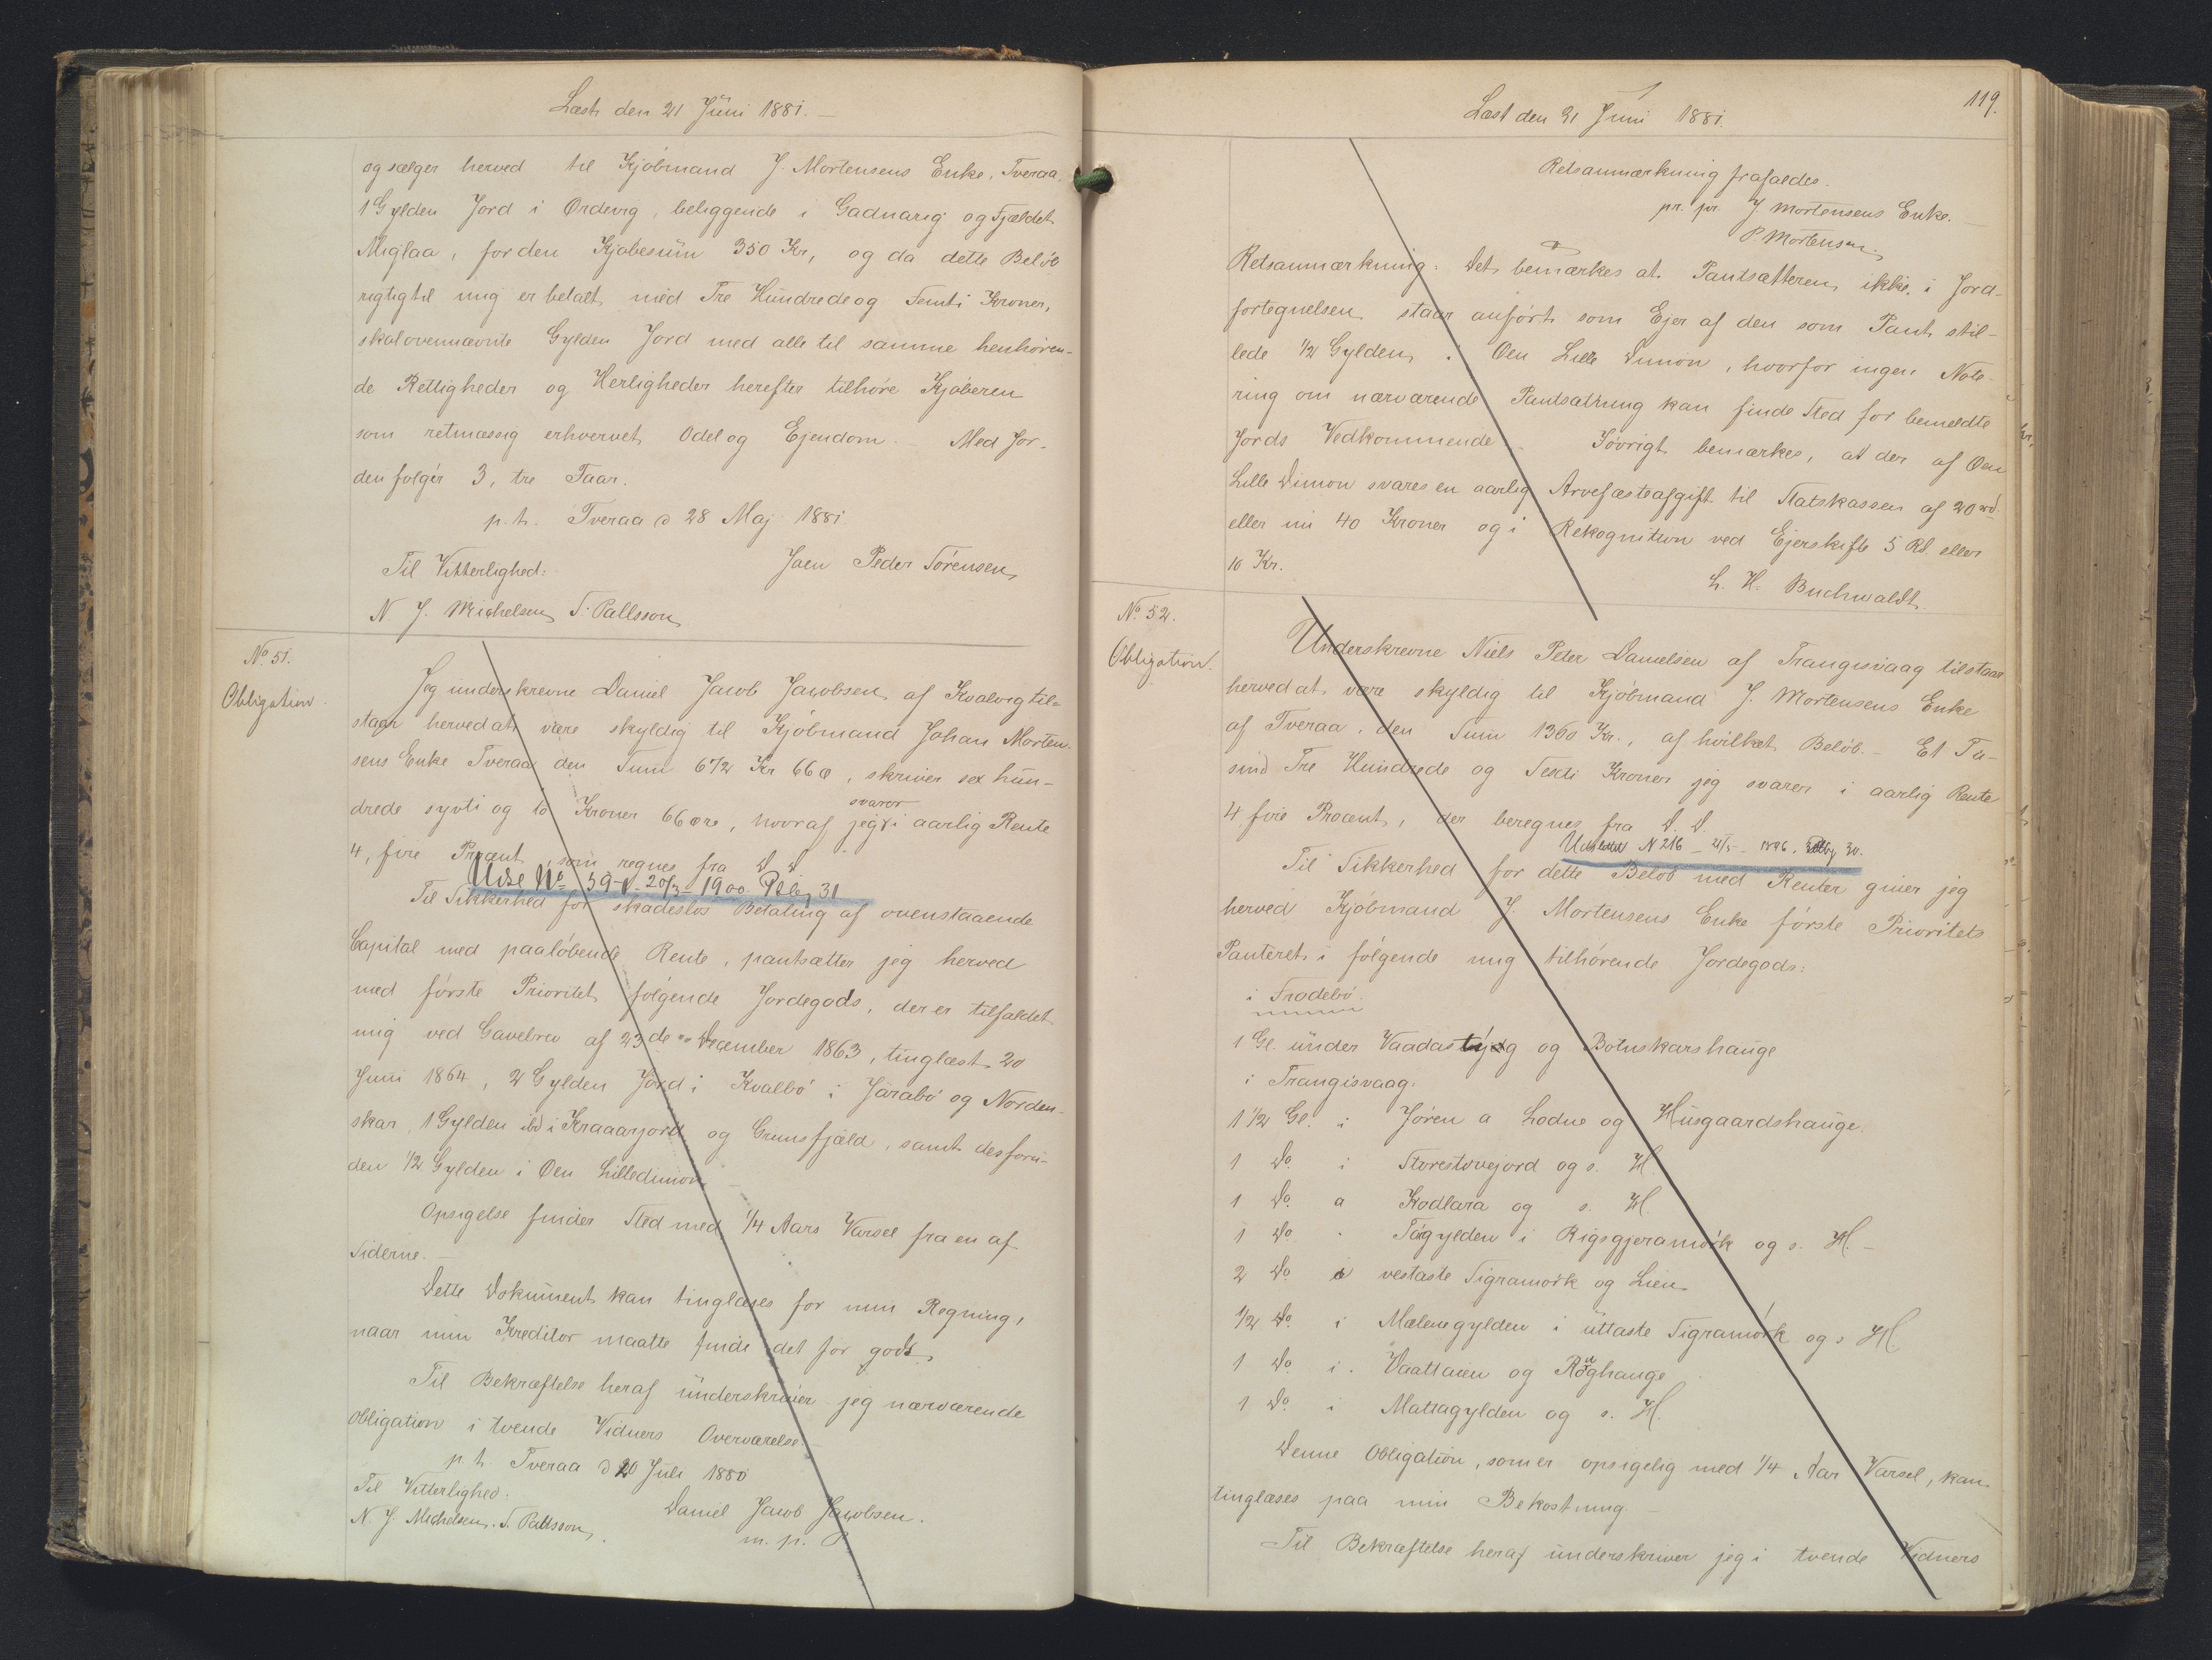 Læst den 21 Juni 1881.
og sælger herved til Kjöbmand J. Mortensens Enke, Tveraa,
1 Gylden Jord i Ördevig, beliggende i Gadnarig og Fjældet
Miglaa, for den Kjöbesum 350 Kr, og da dette Belöb
rigtig til mig er betalt med Tre Hundrede og Femti Kroner,
skal ovennævnte Gylden Jord med alle til samme henhören-
de Rettigheder og Herligheder herefter tilhöre Kjöberen
som retmæssig erhvervet Odel og Ejendom. Med Jor-
den fölger 3, tre Faar.
p. t. Tveraa d 28 Maj 1881
Til Vitterlighed: Joen Peder Sörensen
N. J. Michelsen S. Pallsson
No. 51.
Obligation.
Jeg underskrevne Daniel Jacob Jacobsen af Kvalvig til-
staar herved at være skyldig til Kjöbmand Johan Morten-
sens Enke Tveraa den Sum 672 Kr 66 ö, skriver sex hun-
drede syvti og to Kroner 66 öre, hvoraf jeg svarer i aarlig Rente
4, fire Procent, som regnes fra D. D.
Udsl No 59 - 20/3 - 1900. Pllb 31
Til Sikkerhed for skadeslös Betaling af ovenstaaende
Capital med paalöbende Rente, pantsætter jeg herved
med förste Prioritet fölgende Jordegods, der er tilfaldet
mig ved Gavebrev af 23de December 1863, tinglæst 20
Juni 1864, 2 Gylden Jord i Kvalbö i Jarabö og Norden-
skar, 1 Gylden ibd i Kraaarjord og Grunsfjæld, samt desforu-
den 1/2 Gylden i Öen Lilledimon
Opsigelse finder Sted med 1/4 Aars Varsel fra en af
Siderne.
Dette Dokument kan tinglæses for min Regning,
naar min Kreditor maatte finde det for godt.
Til Bekræftelse heraf underskriver jeg nærværende
Obligation i tvende Vidners Overværelse.
p. t. Tveraa d 20 Juli 1880
Til Vitterlighed: Daniel Jacob Jacobsen.
N. J. Michelsen. S. Pallsson. m. p.
119.
Læst den 21 Juni 1881.
Retsanmærkning frafaldes.
pr. pr. J. Mortensens Enke.
P. Mortensen.
Retsanmærkning: Det bemærkes at Pantsætteren ikke i Jord-
fortegnelsen staar anfört som Ejer af den som Pant stil-
lede 1/2 Gylden i Öen Lille Dimon, hvorfor ingen Note-
ring om nærværende Pantsætning kan finde Sted for bemeldte
Jords Vedkommende. Iövrigt bemærkes, at der af Öen
Lille Dimon svares en aarlig Arvefæsteafgift til Statskassen af 20 rd.
eller nu 40 Kroner og i Rekognition ved Ejerskifte 5 Rd. eller
10 Kr.
L. H. Buchwaldt.
No. 52.
Obligation.
Underskrevne Niels Peter Danielsen af Trangisvaag tilstaar
herved at være skyldig til Kjöbmand J. Mortensens Enke
af Tveraa, den Sum 1360 Kr., af hvilket Belöb - Et Tu-
sind Tre Hundrede og Sexti Kroner jeg svarer i aarlig Rente
4 fire Procent, der beregnes fra D. D.
N 216 - 21/5 - 1896. 30.
Til Sikkerhed for dette Belöb med Renter giver jeg
herved Kjöbmand J. Mortensens Enke förste Prioritets
Panteret i fölgende mig tilhörende Jordegods:
i Frodebö.
1 Gl. under Vaadas og Botnskarshauge
i Trangisvaag:
1 1/2 Gl. i Jören a Lodne og Husgaardshauge.
1 Do. i Storestovejord og s. H.
1 Do. a Kodlara og s. H.
1 Do. Tögylden i Rigsgjeramörk og s. H.
2 Do. i vestaste Tigramörk og Lien
1/2 Do. i Malenegylden i uttaste Tigramörk og s H.
1 Do. i. Vaattaien og Röghauge
1 Do. i Mattagylden og s. H.
Denne Obligation, som er opsigelig med 1/4 Aar Varsel, kan
tinglæses paa min Bekostning.
Til Bekræftelse heraf underskriver jeg i tvende Vidners